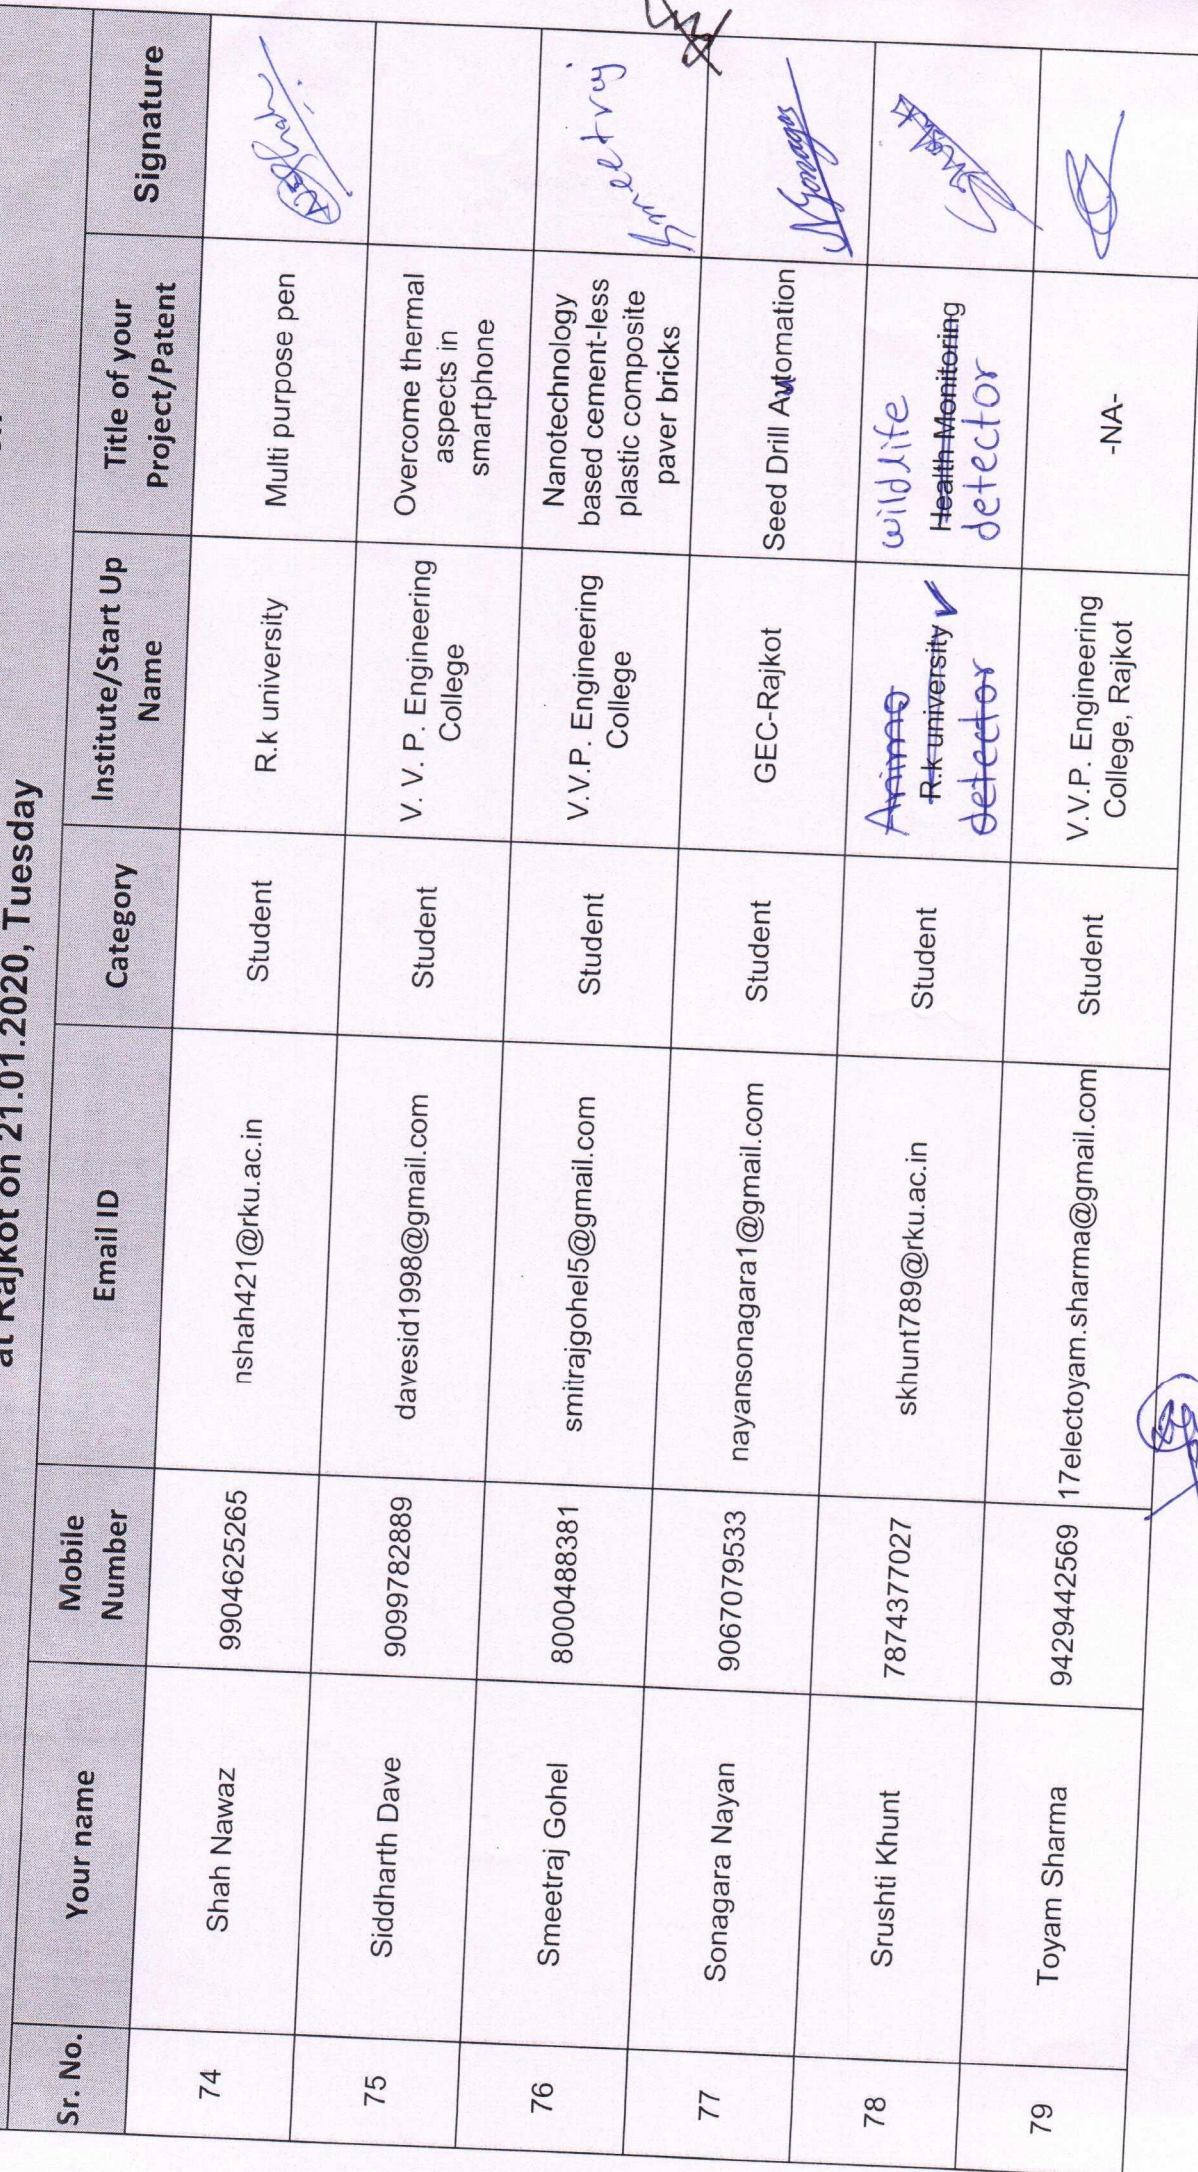 at Rajkot on 21.01.2020, Tuesday
Sr. No. Your name Mobile Number Email ID Category Institute/Start Up Name Title of your Project/Patent Signature
74 Shah Nawaz 9904625265 nshah421@rku.ac.in Student R.k university Multi purpose pen
75 Siddharth Dave 9099782889 davesid1998@gmail.com Student V. V. P. Engineering College Overcome thermal aspects in smartphone
76 Smeetraj Gohel 8000488381 smitrajgohel5@gmail.com Student V.V.P. Engineering College Nanotechnology based cement-less plastic composite paver bricks Smeetraj
77 Sonagara Nayan 9067079533 nayansonagara1@gmail.com Student GEC-Rajkot Seed Drill Automation
78 Srushti Khunt 7874377027 skhunt789@rku.ac.in Student Anima R.k university ✓ detector wildlife Health Monitoring detector
79 Toyam Sharma 9429442569 17electoyam.sharma@gmail.com Student V.V.P. Engineering College, Rajkot -NA-